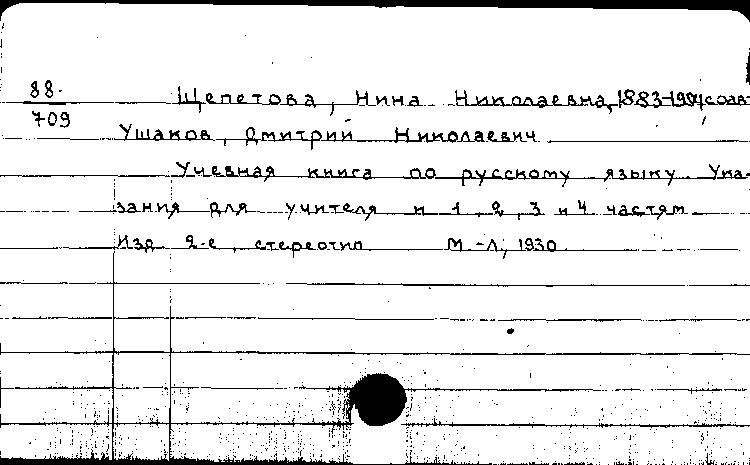 88.
709
Щепетова, Нина Николаевна, соавт
Ушаков, Дмитрий Николаевич.
Учебная книга по русскому языку. Ука-
зания для учителя к 1, 2, 3 и 4 частям.
Изд. 2-е, стереотип. М.-Л., 1930.